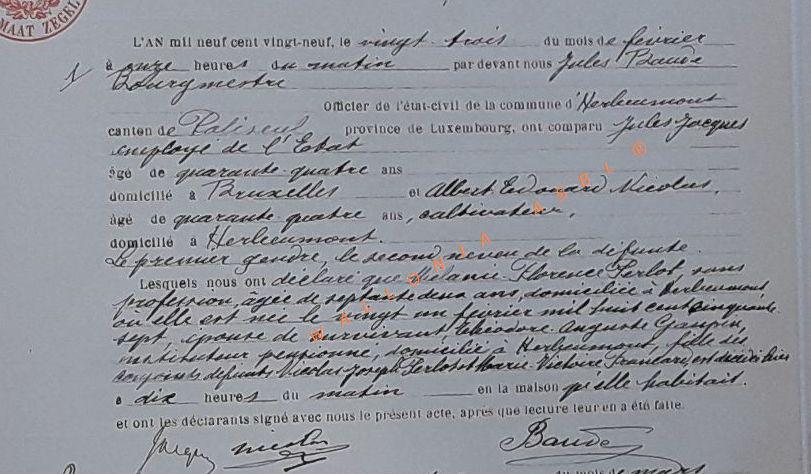 MAAT ZEGEL
L'AN mil neuf cent vingt-neuf, le vingt-trois du mois de février
à onze heures du matin par devant nous Jules Baude
Bourgmestre
Officier de l'état-civil de la commune d'Herbeumont
canton de Paliseul province de Luxembourg, ont comparu Jules Jacques
employé de l'Etat
âgé de quarante-quatre ans
domicilié à Bruxelles et Albert Edouard Nicolas,
âgé de quarante quatre ans, cultivateur,
domicilié à Herbeumont.
Le premier gendre, le second neveu de la défunte.
Lesquels nous ont déclaré que Mélanie Florence Perlot, sans
profession, agée de septante deux ans, domiciliée à Herbeumont
où elle est née le vingt un février mil huit cent cinquante
sept, épouse de survivant Théodore Auguste
instituteur pensionné, domicilié à Herbeumont, fille des
conjoints défunts Nicolas Joseph Perlot et Marie Victoire, est décédée hier
à dix heures du matin en la maison qu'elle habitait.
et ont les déclarants signé avec nous le présent acte, après que lecture leur en a été faite.
Nicolas Baude
du mois de mars
WALLONIA ASBL ®